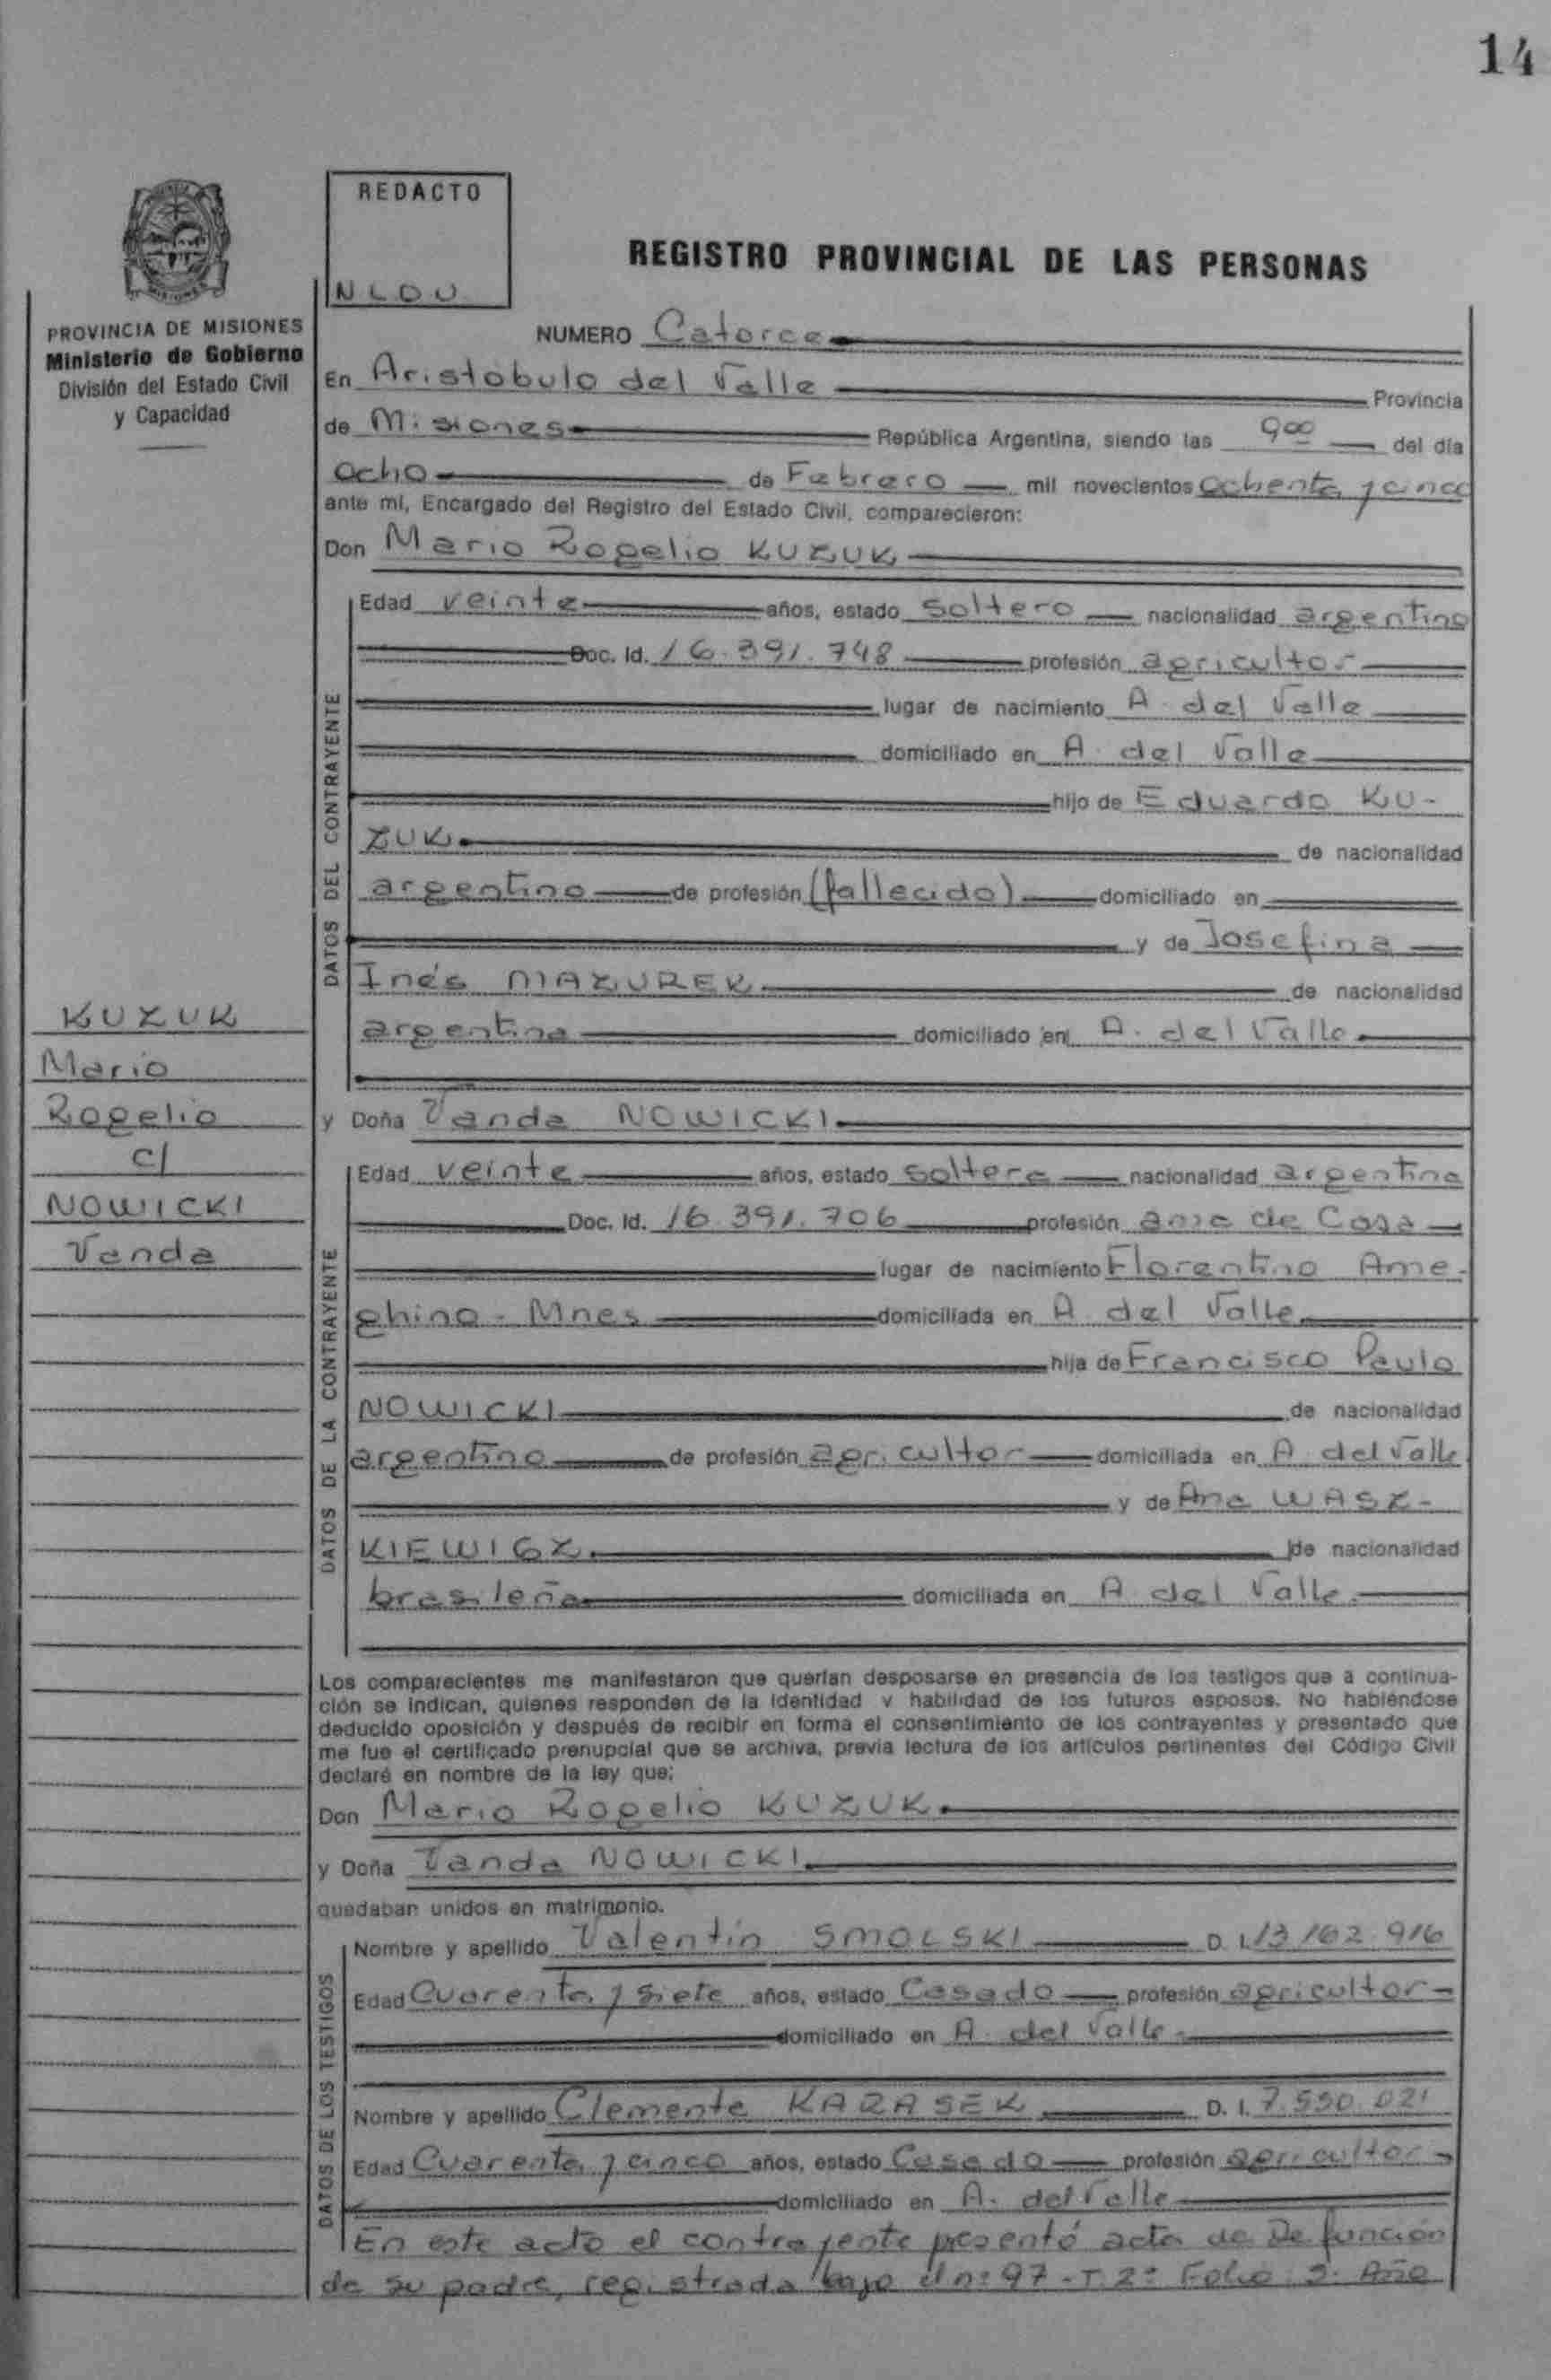 14
REDACTO
NLDU
REGISTRO PROVINCIAL DE LAS PERSONAS
PROVINCIA DE MISIONES
Ministerio de Gobierno
División del Estado Civil
y Capacidad
NUMERO Catorce
En Aristóbulo del Valle Provincia
de Misiones República Argentina, siendo las 9 00 del día
ocho de Febrero mil novecientos ochenta y cinco
ante mí, Encargado del Registro del Estado Civil, comparecieron:
Don Mario Rogelio KUZUK
DATOS DEL CONTRAYENTE
Edad veinte años, estado soltero nacionalidad argentino
Doc. Id. 16.391.748 profesión agricultor
lugar de nacimiento A. del Valle
domiciliado en A. del Valle
hijo de Eduardo KU-
ZUK de nacionalidad
argentino de profesión (fallecido) domiciliado en
y de Josefina
Inés MAZUREK de nacionalidad
argentina domiciliado en A. del Valle
KUZUK
Mario
Rogelio
c/
NOWICKI
Vanda
y Doña Vanda NOWICKI
DATOS DE LA CONTRAYENTE
Edad veinte años, estado soltera nacionalidad argentina
Doc. Id. 16.391.706 profesión ama de Casa
lugar de nacimiento Florentino Ame-
ghino - Mnes domiciliada en A. del Valle
hija de Francisco Paulo
NOWICKI de nacionalidad
argentino de profesión agricultor domiciliada en A. del Valle
y de Ana WASZ-
KIEWIGZ de nacionalidad
brasileña domiciliada en A. del Valle
Los comparecientes me manifestaron que querían desposarse en presencia de los testigos que a continua-
ción se indican, quienes responden de la identidad y habilidad de los futuros esposos. No habiéndose
deducido oposición y después de recibir en forma el consentimiento de los contrayentes y presentado que
me fue el certificado prenupcial que se archiva, previa lectura de los artículos pertinentes del Código Civil
declaré en nombre de la ley que:
Don Mario Rogelio KUZUK
y Doña Vanda NOWICKI
quedaban unidos en matrimonio.
DATOS DE LOS TESTIGOS
Nombre y apellido Valentín SMOLSKI D. I. 13.162.916
Edad Cuarenta y siete años, estado Casado profesión agricultor
domiciliado en A. del Valle
Nombre y apellido Clemente KARASEK D. I. 7.550.021
Edad Cuarenta y cinco años, estado Casado profesión agricultor
domiciliado en A. del Valle
En este acto el contrayente presentó acta de Defunción
de su padre, registrada bajo el nº 97 - T. 2º Folio: 2. Año